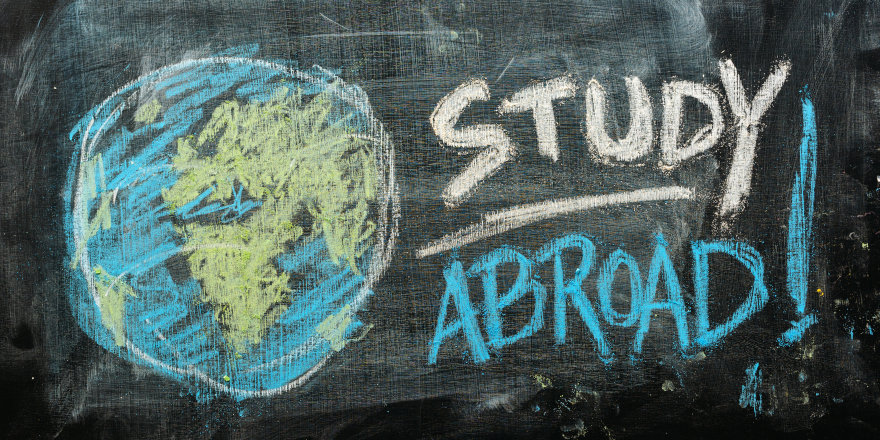 STUDY
ABROAD!